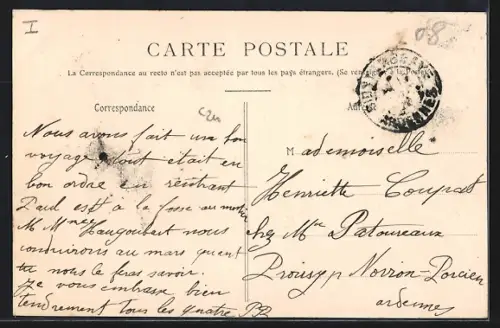 I
08
CARTE POSTALE
La Correspondance au recto n'est pas acceptée par tous les pays étrangers. (Se
Correspondance
Nous avons fait un bon
voyage tout était en
bon ordre en rentrant
Paul est à la
M. Mme Haugoubart nous
conduirons au mars quant
tu nous le feras savoir.
Je vous embrasse bien
tendrement tous les quatre PP
Mademoiselle
Henriette Coupat
chez Mr Patoureaux
Proisy p Novion-Porcien
ardennes